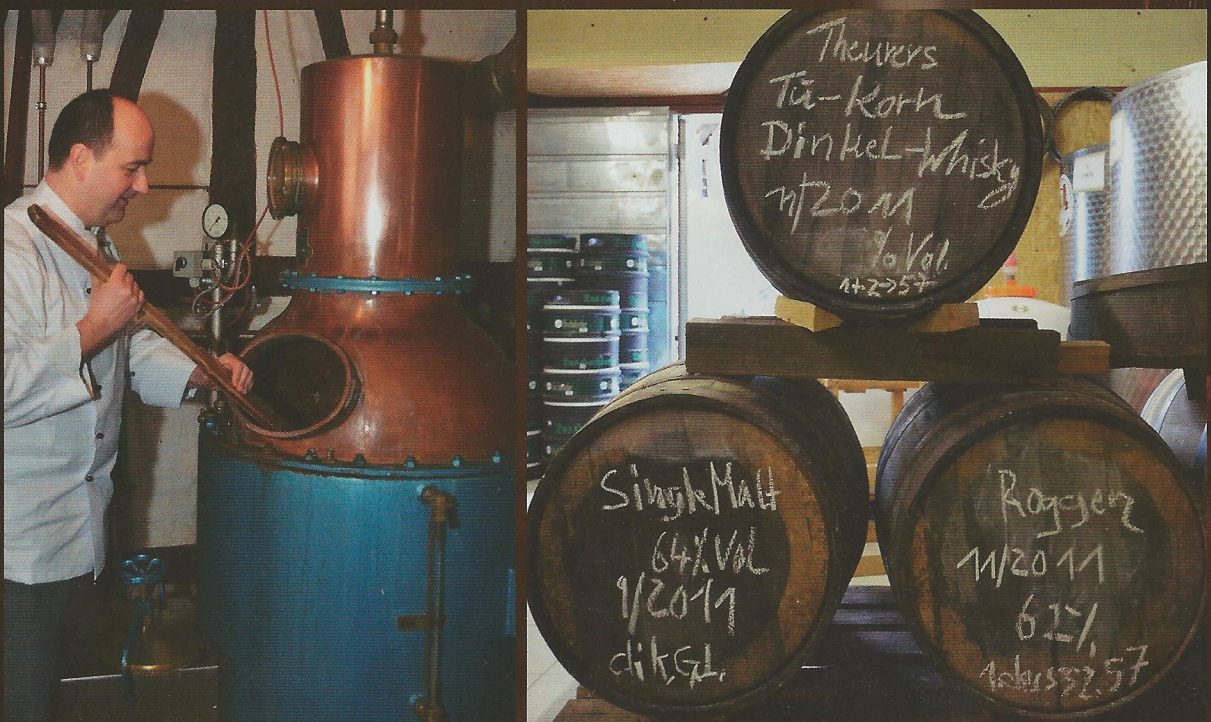 Theurers
Tü-Korn
Dinkel-Whisky
11/2011
% Vol.
Single Malt
64% Vol
9/2011
Roggen
11/2011
62%